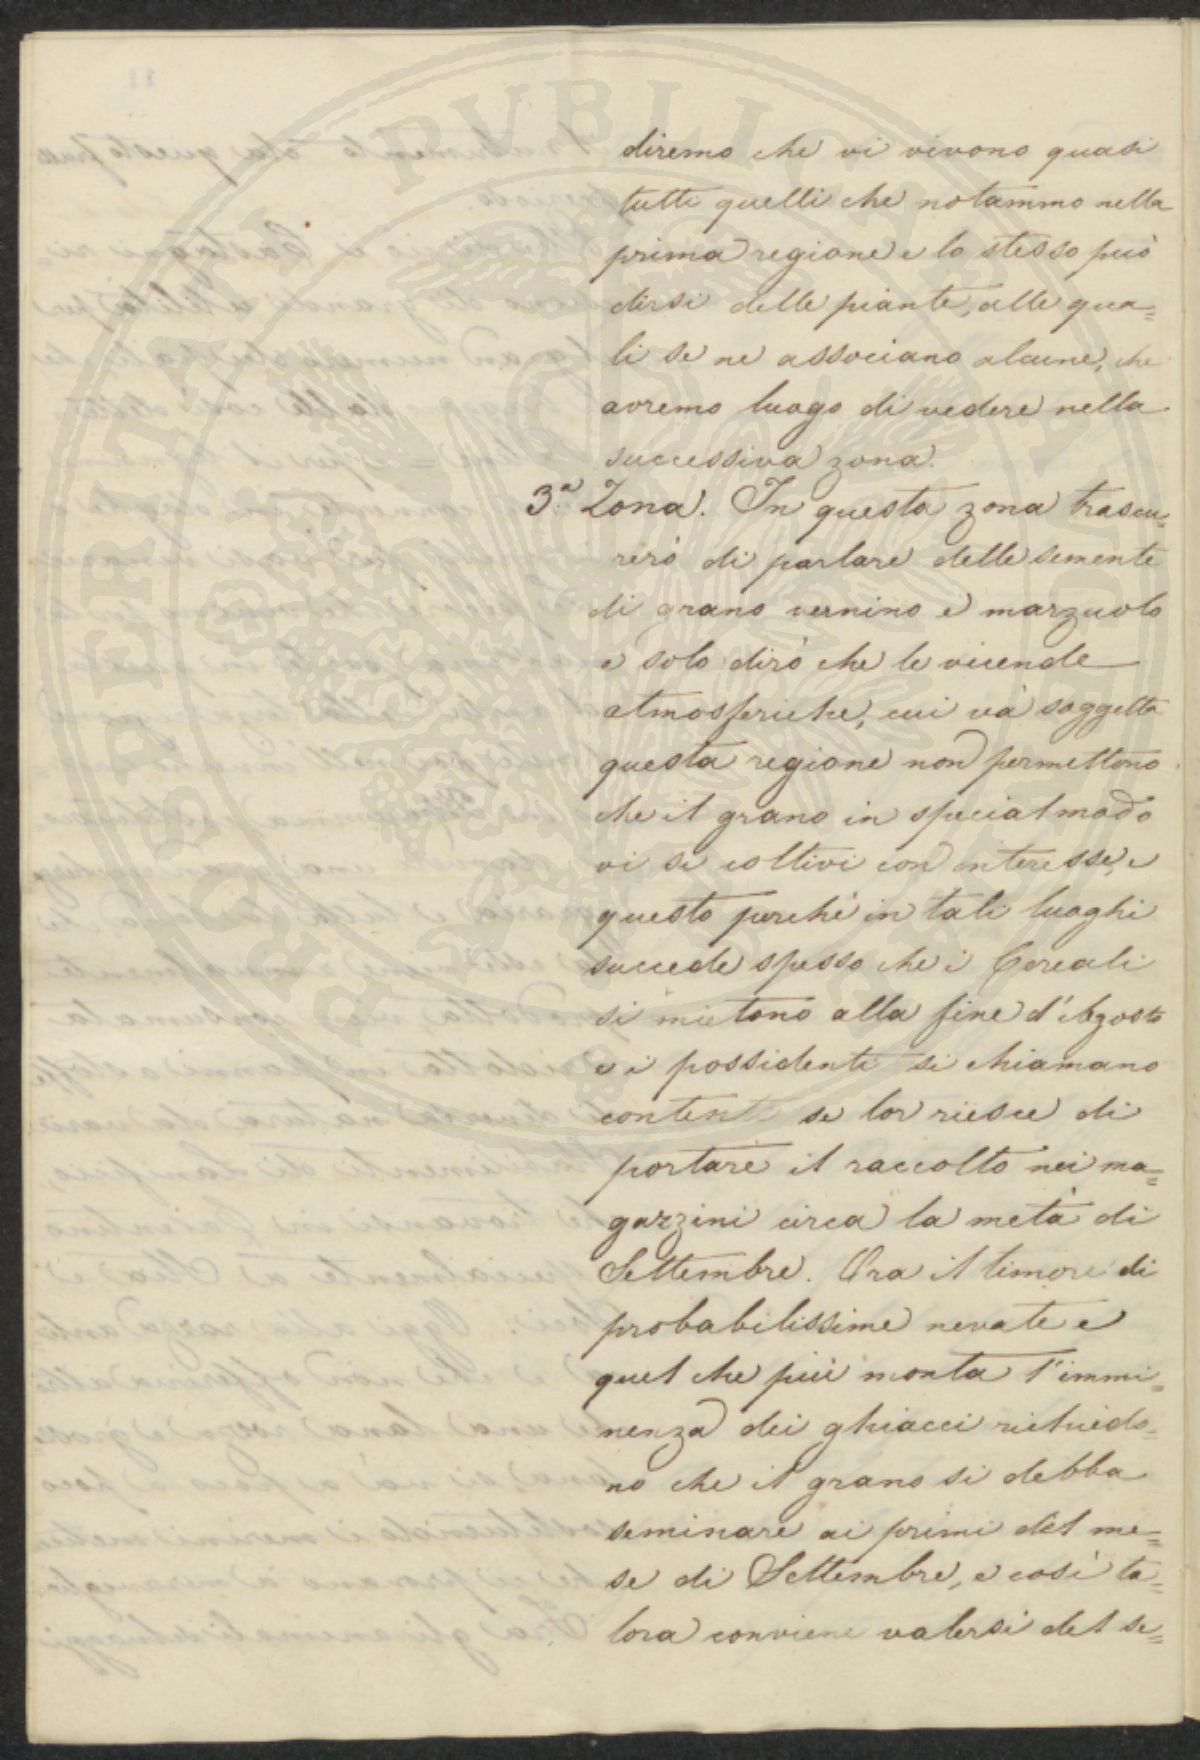 diremo che vi vivono quasi
tutti quelli che notammo nella
prima regione e lo stesso può
dirsi delle piante, alle qua=
li se ne associano alcune, che
avremo luogo di vedere nella
successiva zona.
3.a Zona. In questa zona trascu=
rerò di parlare delle semente
di grano vernino e marzuolo
e solo dirò che le vicende
atmosferiche, cui và soggetta
questa regione non permettono
che il grano in special modo
vi si coltivi con interesse, e
questo perchè in tali luoghi
succede spesso che i Cereali
si mietono alla fine d'Agosto
e i possidenti si chiamano
contenti se lor riesce di
portare il raccolto nei ma=
gazzini circa la metà di
Settembre. Ora il timore di
probabilissime nevate e
quel che più monta l'immi=
nenza dei ghiacci richiedo=
no che il grano si debba
seminare ai primi del me=
se di Settembre, e così ta=
lora conviene valersi del se=